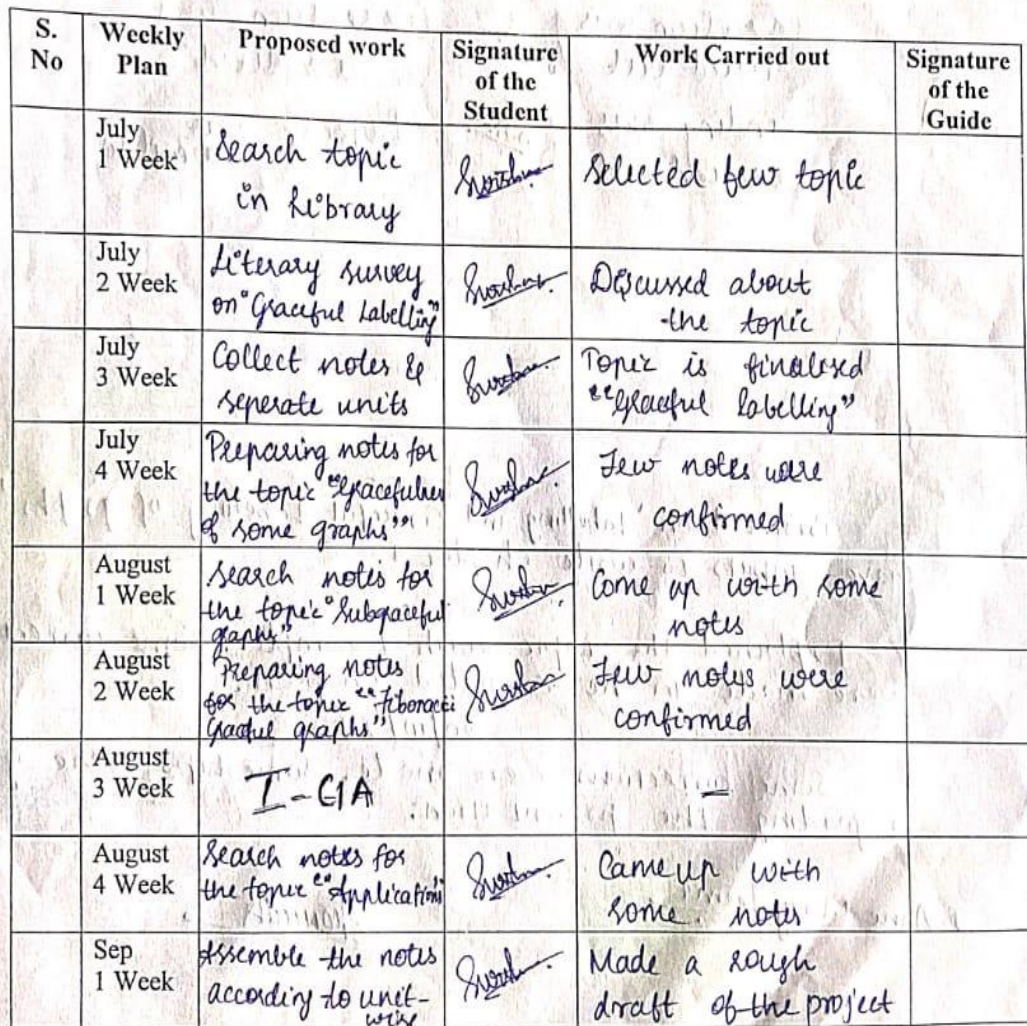 S. No
Weekly Plan
Proposed work
Signature of the Student
Work Carried out
Signature of the Guide
July
1 Week
Search topic
in Library
Selected few topic
July
2 Week
Literary survey
on "Graceful Labelling"
Discussed about
the topic
July
3 Week
Collect notes &
seperate units
Topic is finalised
"Graceful labelling"
July
4 Week
Preparing notes for
the topic "Gracefulness
of some graphs"
Few notes were
confirmed
August
1 Week
Search notes for
the topic "Subgraceful
graphs"
Come up with some
notes
August
2 Week
Preparing notes
for the topic "Fibonacci
Graceful graphs"
Few notes were
confirmed
August
3 Week
I - CIA
-
August
4 Week
Search notes for
the topic "Application"
Came up with
some notes
Sep
1 Week
Assemble the notes
according to unit-
wise
Made a rough
draft of the project